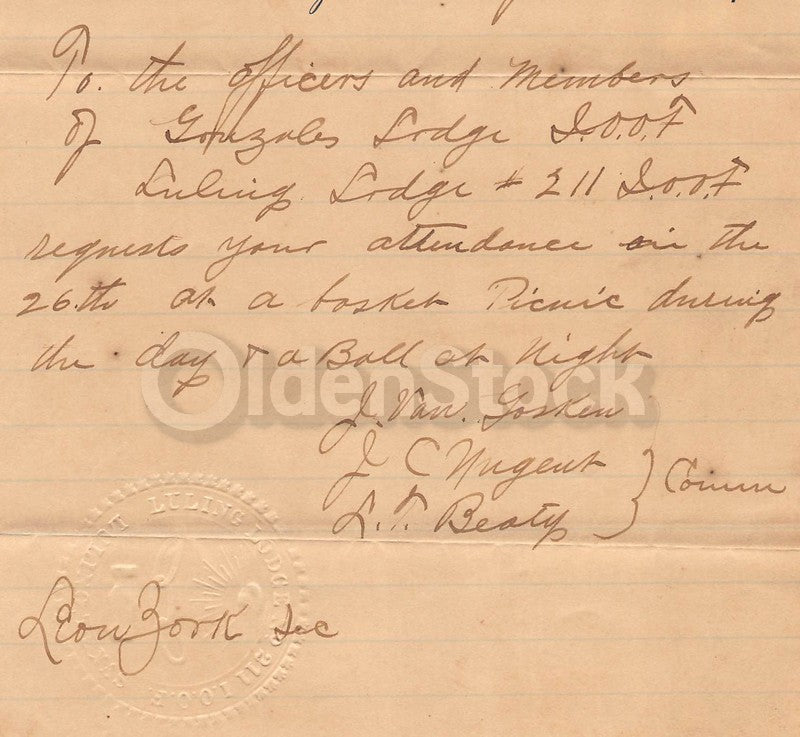 To. the officers and Members
of Gonzales Lodge I.O.O.F
Luling Lodge # 211 I.O.O.F
requests your attendance on the
26th at a basket Picnic during
the day & a Ball at Night
OldenStock
J. Van. Gosken
J C Nugent
L. T. Beaty
Comm
Leon Zork Sec
LULING LODGE
211 I.O.O.F.